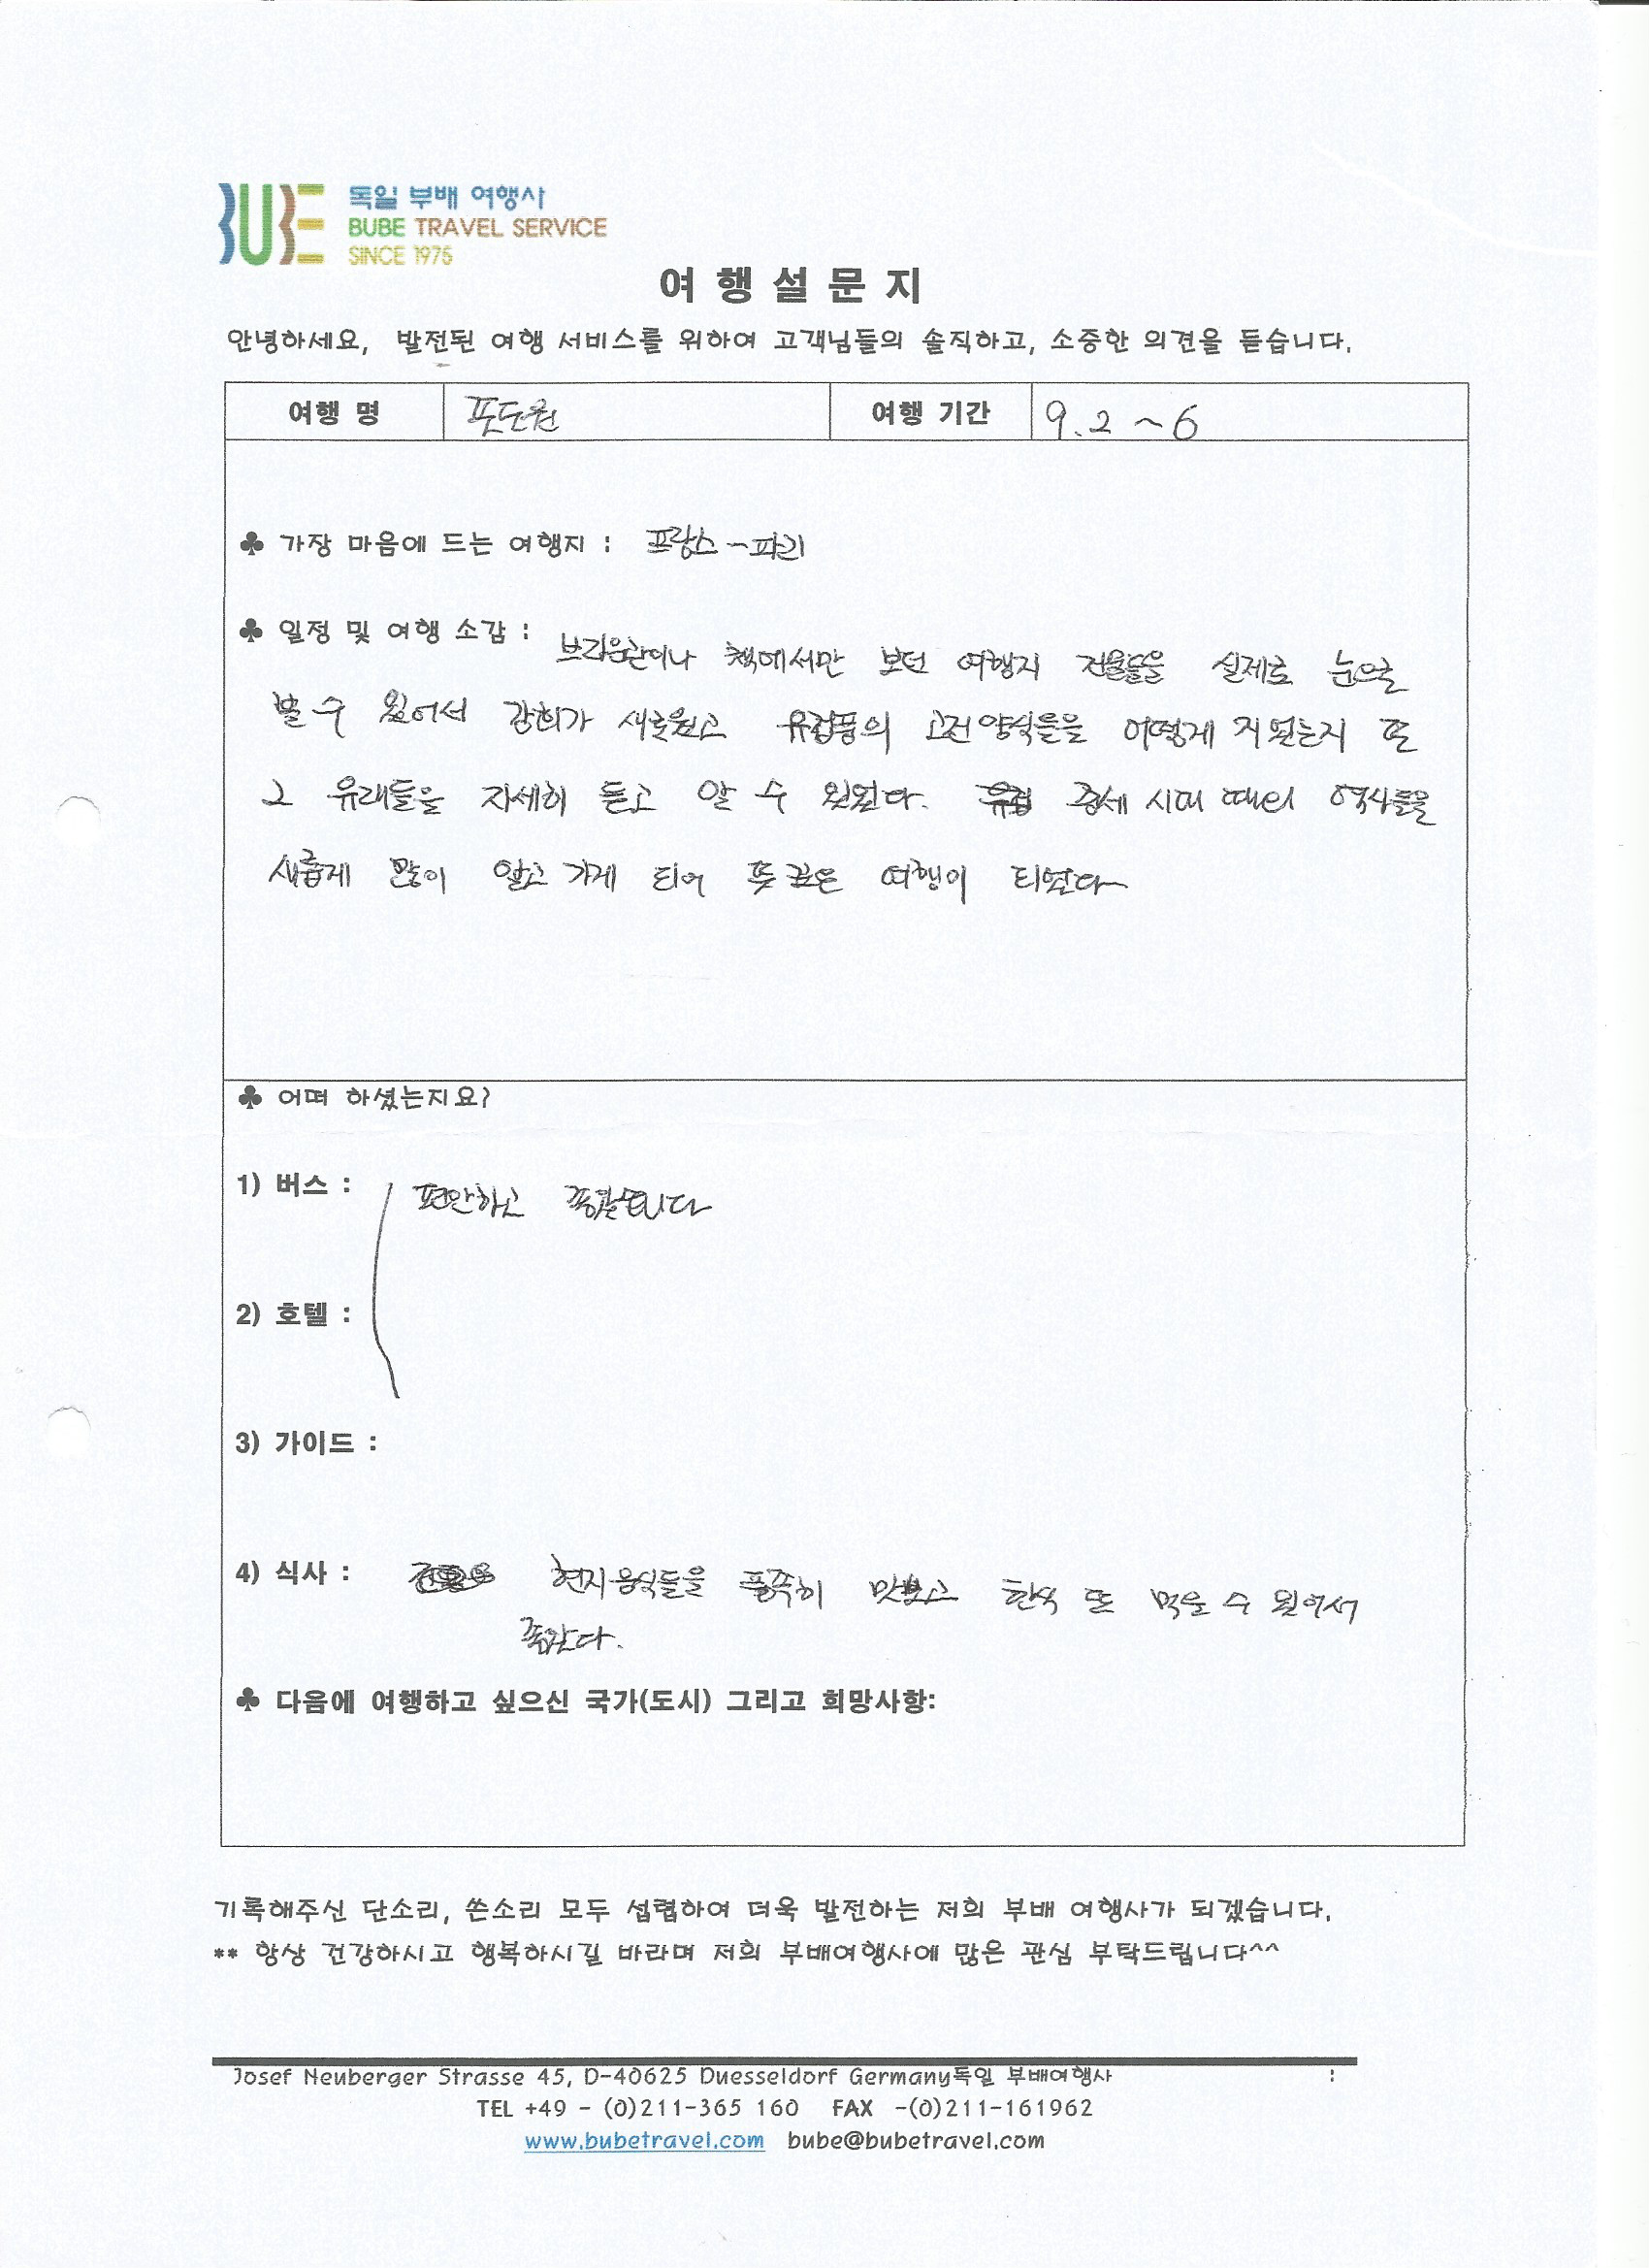 독일 부배 여행사
BUBE TRAVEL SERVICE
SINCE 1975
여 행 설 문 지
안녕하세요, 발전된 여행 서비스를 위하여 고객님들의 솔직하고, 소중한 의견을 듣습니다.
여행 명 포도원 여행 기간 9.2 ~ 6
♣ 가장 마음에 드는 여행지 : 프랑스 - 파리
♣ 일정 및 여행 소감 : 브라운관이나 책에서만 보던 여행지 건물들을 실제로 눈으로
볼 수 있어서 감회가 새로웠고 유럽풍의 고전양식들을 어떻게 지었는지 또
그 유래들을 자세히 듣고 알 수 있었다. 중세 시대 때의 역사들을
새롭게 많이 알고 가게 되어 뜻 깊은 여행이 되었다~
♣ 어떠 하셨는지요?
1) 버스 : 편안하고
2) 호텔 :
3) 가이드 :
4) 식사 : 현지음식들을 풍족히 맛보고 한식 또 먹을 수 있어서
좋았다.
♣ 다음에 여행하고 싶으신 국가(도시) 그리고 희망사항:
기록해주신 단소리, 쓴소리 모두 섭렵하여 더욱 발전하는 저희 부배 여행사가 되겠습니다.
** 항상 건강하시고 행복하시길 바라며 저희 부배여행사에 많은 관심 부탁드립니다^^
Josef Neuberger Strasse 45, D-40625 Duesseldorf Germany독일 부배여행사 :
TEL +49 - (0)211-365 160 FAX -(0)211-161962
www.bubetravel.com bube@bubetravel.com